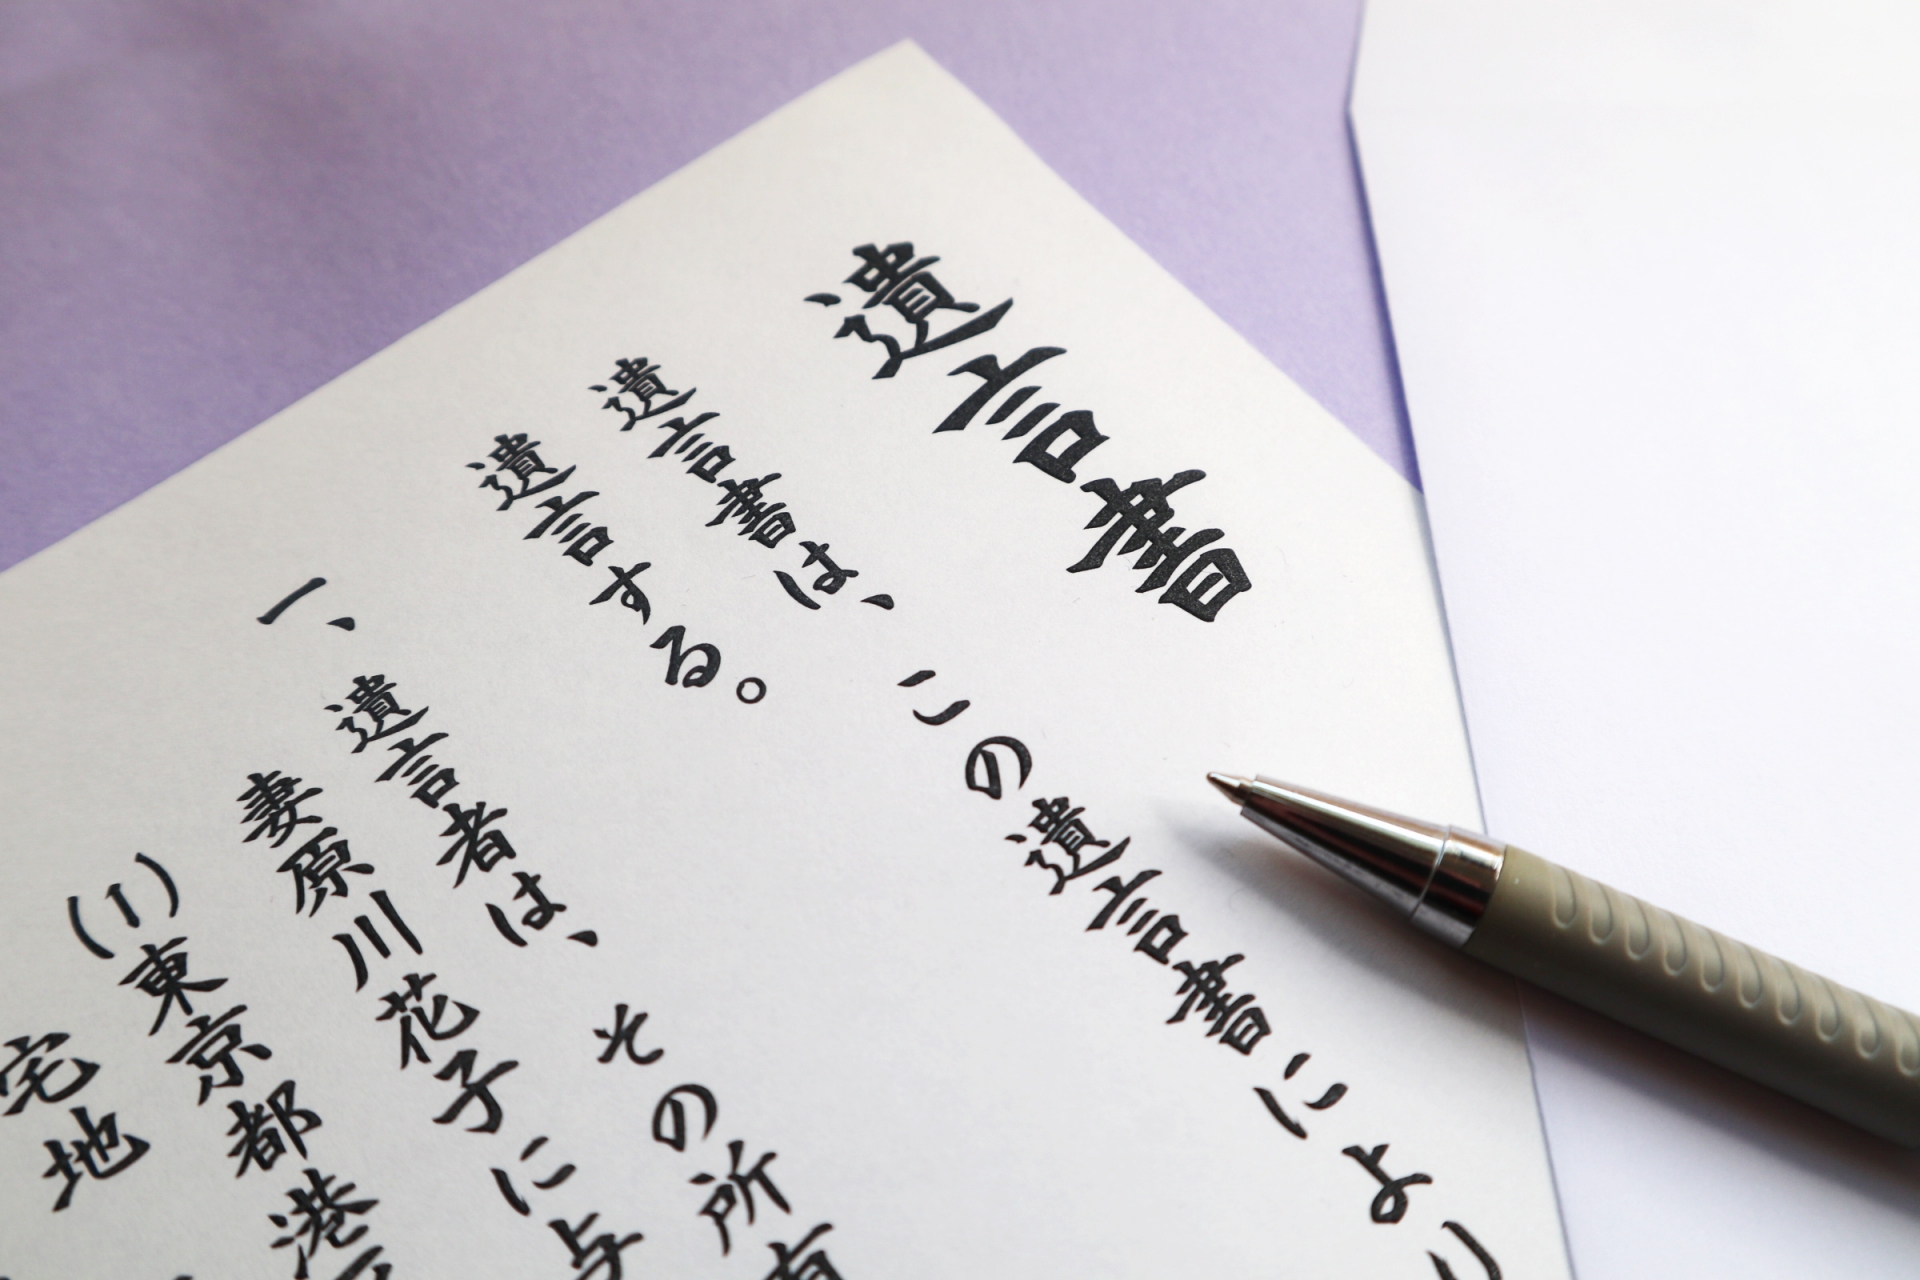 遺言書
遺言書は、この遺言書により
遺言する。
一、遺言者は、その所有
妻原川花子に与
(1)東京都港区
宅地